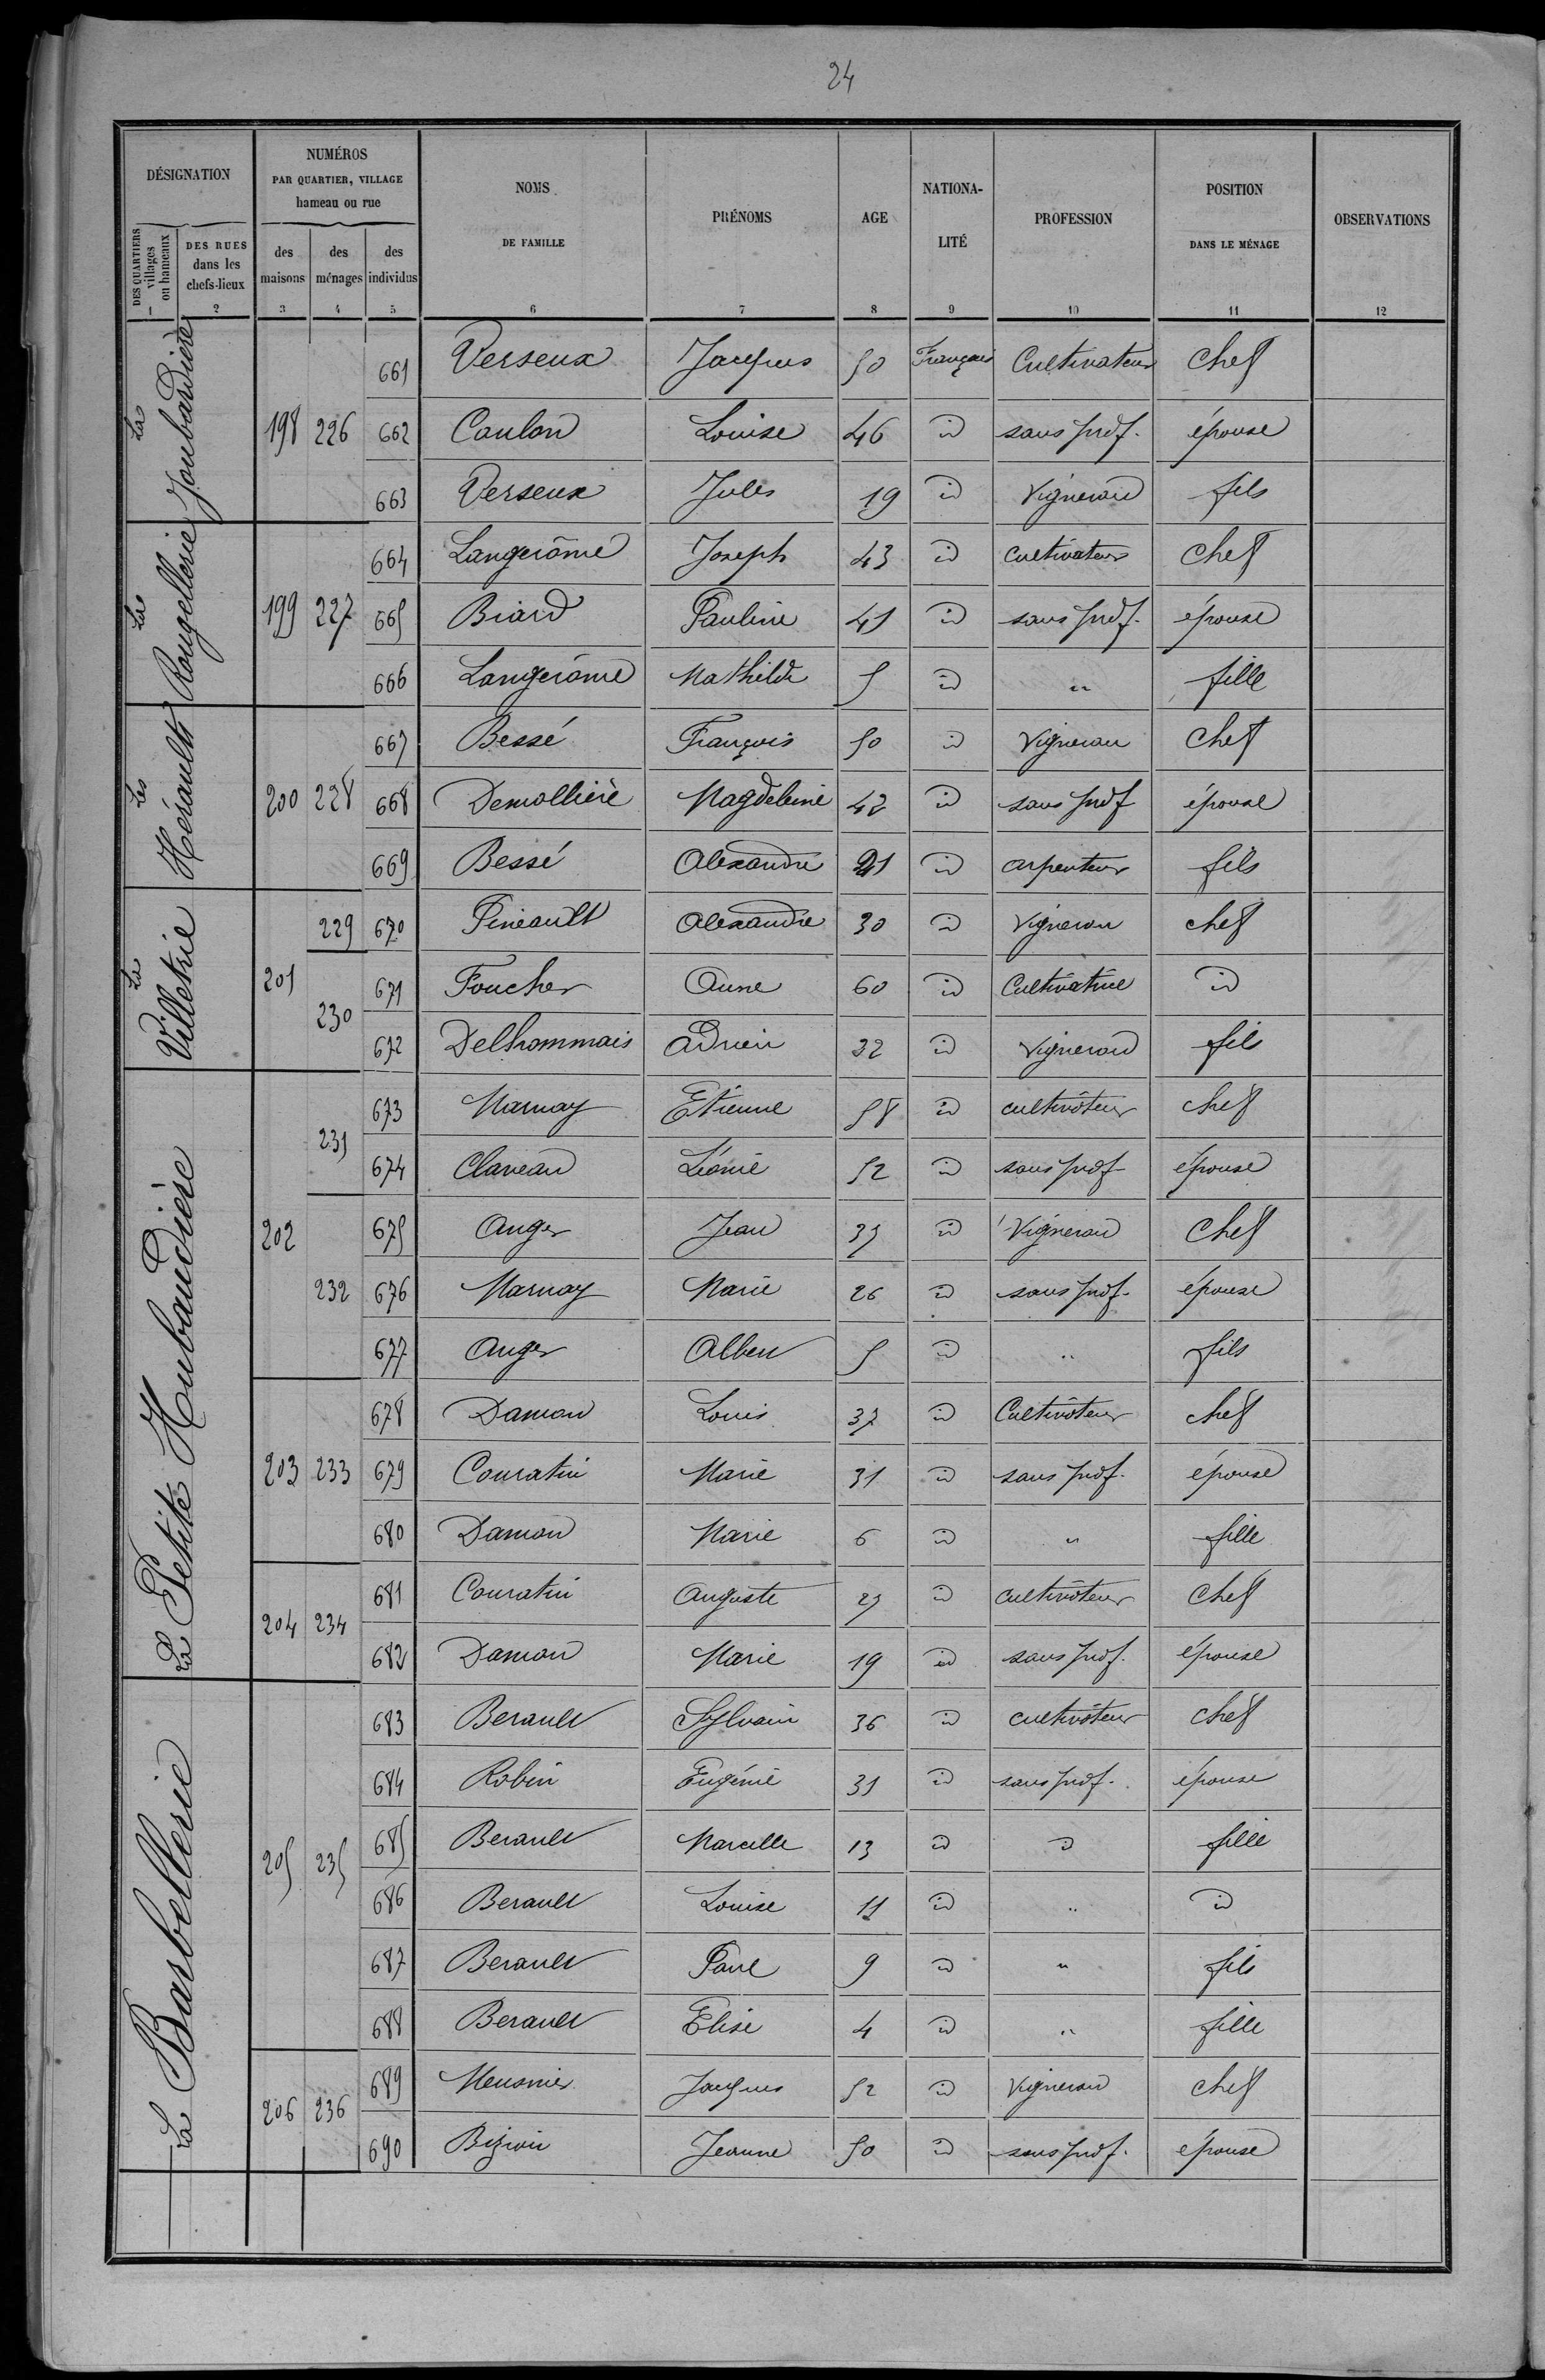 24
DÉSIGNATION
NUMÉROS
PAR QUARTIER, VILLAGE
hameau ou rue
NOMS
DE FAMILLE
PRÉNOMS
AGE
NATIONA-
LITÉ
PROFESSION
POSITION
DANS LE MÉNAGE
OBSERVATIONS
DES QUARTIERS
villages
ou hameaux
DES RUES
dans les
chefs-lieux
des
maisons
des
ménages
des
individus
1 2 3 4 5 6 7 8 9 10 11 12
La Joubardière
198 226
661 Verseux Jacques 50 Français Cultivateur Chef
662 Coulon Louise 46 id sans prof. épouse
663 Verseux Jules 19 id Vigneron fils
La Rougellerie
199 227
664 Langerôme Joseph 43 id Cultivateur Chef
665 Biard Pauline 41 id sans prof. épouse
666 Langerôme Mathilde 5 id " fille
Les Hérault
200 228
667 Bessé François 50 id Vigneron Chef
668 Demollière Magdeleine 42 id sans prof épouse
669 Bessé Alexandre 21 id arpenteur fils
La Villetrie
201
229 670 Pineault Alexandre 30 id Vigneron chef
230 671 Foucher Anne 60 id Cultivatrice id
672 Delhommais Adrien 32 id Vigneron fils
La Petite Hubaudière
202
231 673 Marnay Etienne 58 id cultivateur chef
674 Claveau Léonie 52 id sans prof épouse
232 675 Auger Jean 35 id Vigneron Chef
676 Marnay Marie 26 id sans prof. épouse
677 Auger Albert 5 id " fils
203 233
678 Damon Louis 37 id Cultivateur chef
679 Couratin Marie 31 id sans prof. épouse
680 Damon Marie 6 id " fille
204 234
681 Couratin Auguste 25 id cultivateur Chef
682 Damon Marie 19 id sans prof. épouse
La Barbellerie
205 235
683 Berault Sylvain 36 id cultivateur chef
684 Robin Eugénie 31 id sans prof. épouse
685 Berault Marcelle 13 id id fille
686 Berault Louise 11 id " id
687 Berault Paul 9 id " fils
688 Berault Elise 4 id " fille
206 236
689 Meusnier Jacques 52 id Vigneron chef
690 Jeanne 50 id sans prof. épouse